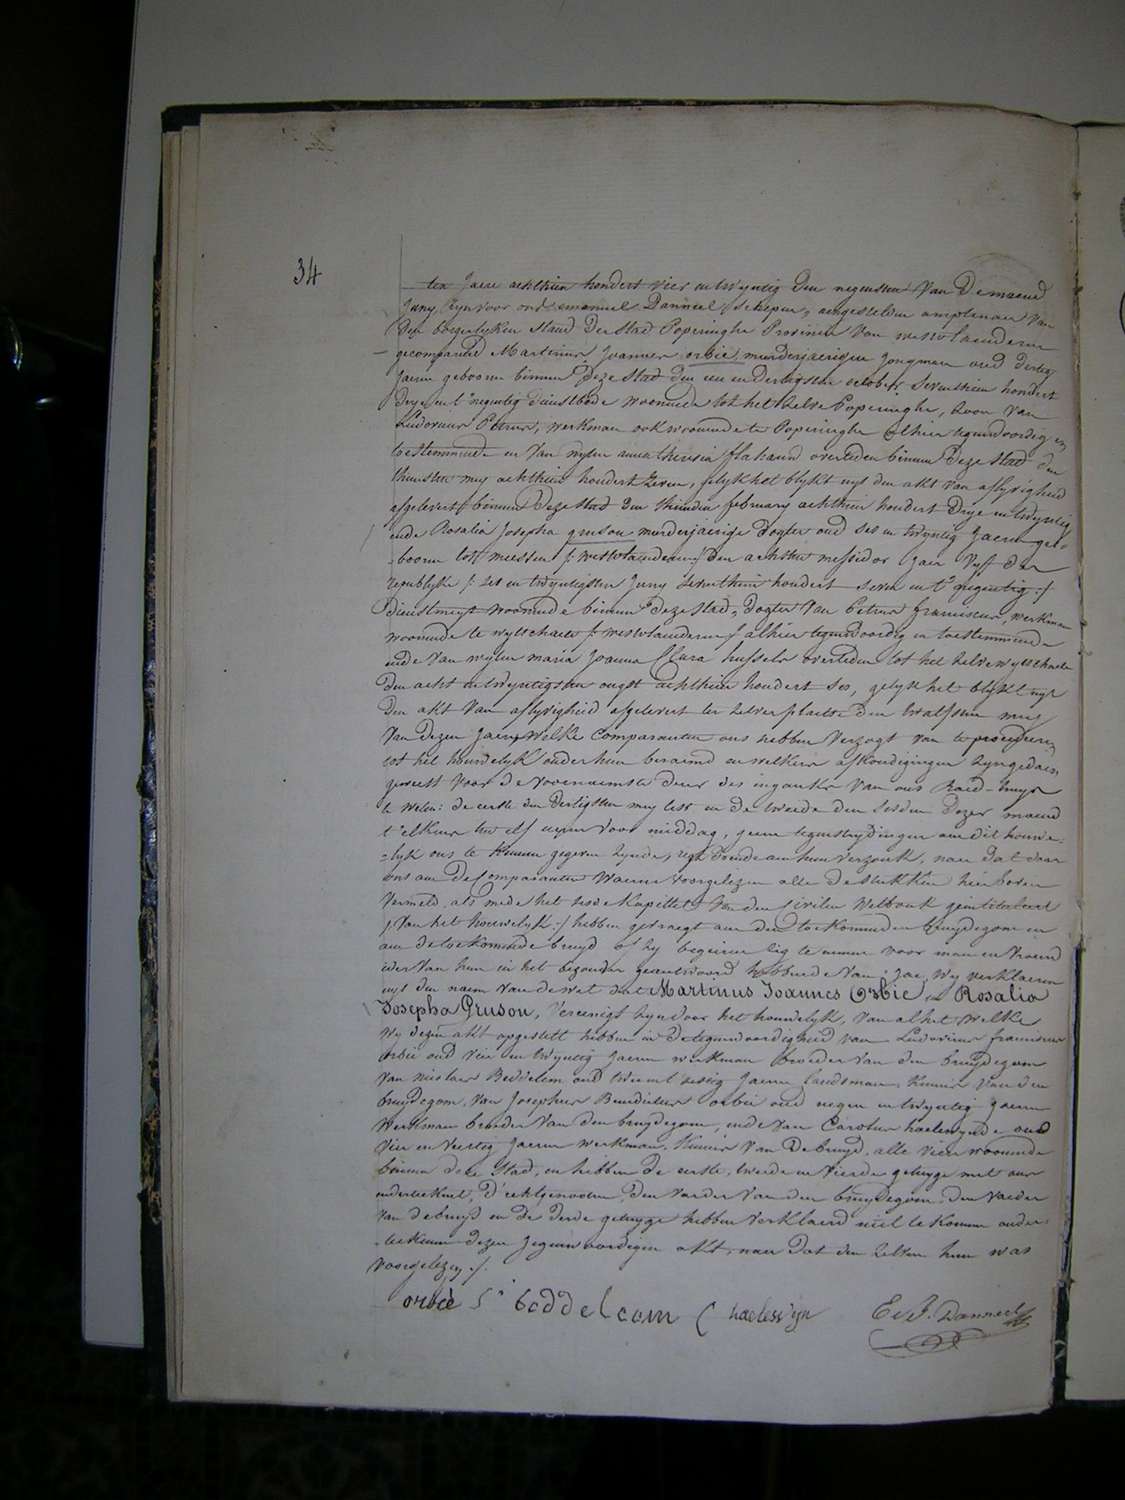 34
ten Jaere achthien hondert vier en twyntig den negensten van de maend
Juny, zyn voor ons emanuel Danneel schepen, aengestelden amptenaer van
den borgerlyken staed der stad Poperinghe Provincie van westvlaenderen
gecompareerd Martinus Joannes orbie, meerderjaerigen jongman oud dertig
Jaeren geboren binnen deze stad den een en dertigsten october seventhien hondert
drye en t'negentig dienstbode woonende tot het zelve Poperinghe, zoon van
Ludovicus Petrus, werkman ook woonende te Poperinghe alhier tegenwoordig en
toestemmende en van wylen anna theresia flahaud overleden binnen deze stad den
thiensten mey achthien hondert zeven, gelyk het blykt uyt den akt van aflyvigheid
afgelevert binnen deze stad den thienden february achthien hondert drye en twyntig
ende Rosalia Josepha gruson meerderjaerige dogter oud ses en twyntig jaeren ge-
-boren tot meessen /: westvlaenderen :/ den achtsten messidor jaer vyf der
republyke /: ses en twyntigsten Juny seventhien hondert seven en t'negentig :/
dienstmeyt woonende binnen deze stad, dogter van Petrus franciscus, werkman
woonende te wytschaete /: westvlaenderen :/ alhier tegenwoordig en toestemmende
ende van wylen maria Joanna Clara hussels overleden tot het zelve wytschaete
den acht en twyntigsten ougst achthien hondert ses, gelyk het blykt uyt
den akt van aflyvigheid afgelevert ter zelver plaetse den twalfsten mey
van dezen jaere, Welke Comparanten ons hebben verzogt van te procederen
tot het houwelyk onder hun beraemd en welkers afkondigingen zyn gedaen
geweest voor de voornaemste deur des ingankx van ons Raed-huys
te weten: de eerste den dertigsten mey lest en de tweede den sesden dezer maend
t'elkens ten elf uren voor middag, geene tegenstrydingen aen dit houwe-
-lyk ons te kennen gegeven zynde, regt doende aen hun verzoek, naer dat door
ons aen de Comparanten waeren voorgelezen alle de stukken hier boven
vermeld, als mede het sesde Kapittel van den sivilen Wetboek geintituleert
/: van het houwelyk :/ hebben gevraegt aen den toekomenden bruydegom en
aen de toekomende bruyd of zy begeiren zig te nemen voor man en vrouw
ider van hun in het bezonder geantwoord hebbende van: jae, wy verklaeren
uyt den naem van de wet dat Martinus Joannes Orbie en Rosalia
Josepha Gruson, vereenigt zyn door het houwelyk, van al het welke
wy dezen akt opgestelt hebben in de tegenwoordigheid van Ludovicus franciscus
orbie oud vier en twyntig jaeren werkman broeder van den bruydegom
van nicolaes Beddelem oud twee en t'sestig jaeren landsman, kennis van den
bruydegom, van Josephus Benedictus orbie oud negen en twyntig jaeren
werkman broeder van den bruydegom, ende van Carolus haelewynde oud
vier en veertig jaeren werkman, kennis van de bruyd, alle vier woonende
binnen deze stad, en hebben de eerste, tweede en vierde getuyge met ons
onderteekent, d'echtgenooten, den vaeder van den bruydegom, den vaeder
van de bruyd en de derde getuyge hebben verklaerd niet te konnen onder-
-teekenen dezen jegenwoordigen akt, naer dat den zelven hun was
voorgelezen :/.
orbie beddelcom C haelewyn E. J. Danneel